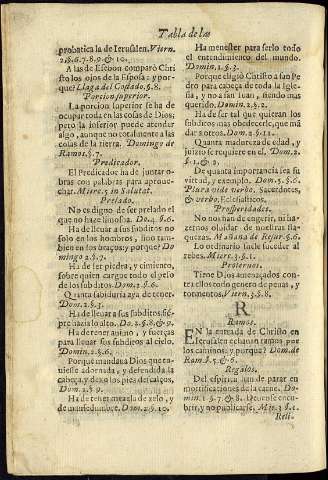 Tabla de las
probatica la de Ierusalen. Viern.
2. §. 6. 7. 8. 9. & 10.
A las de Esebon comparò Chri
sto los ojos de la Esposa: y por
que? Llaga del Costado. §. 8.
Porcion superior.
La porcion superior se ha de
ocupar toda en las cosas de Dios;
pero la inferior puede atender
algo, aunque no totalmente a las
cosas de la tierra. Domingo de
Ramos. §. 7.
Predicador.
El Predicador ha de juntar o-
bras con palabras para aprove-
char. Mierc. 5. in Salutat.
Prelado.
No es digno de ser prelado el
que no haze limosna. Do. 4. §. 6.
Ha de lleuar a sus subditos no
solo en los hombros, sino tam-
bien en los braços; y porque? Do
mingo 2. §. 7.
Ha de ser piedra, y cimiento,
sobre quien cargue todo el peso
de los subditos. Dom. 2. §. 6.
Quanta sabiduria aya de tener.
Dom. 2. §. 3.
Ha de lleuar a sus subditos siẽ-
pre hazia lo alto. Do. 2. §. 8. & 9.
Ha de tener animo, y fuerças
para lleuar sus subditos al cielo.
Domin. 2. §. 6.
Porque mandaua Dios que en-
uiesse adornada, y defendida la
cabeça, y dexò los pies descalços,
Dom. 2. §. 9.
Ha de tener mezcla de zelo, y
de mansedumbre. Dom. 2. §. 10.
Ha menester para serlo todo
el entendimiento del mundo.
Domin. 1. §. 3.
Porque eligiò Christo a san Pe
dro para cabeça de toda la Igle
sia, y no a san Iuan, siendo mas
querido. Domin. 2. §. 2.
Ha de ser tal que quieran los
subditos mas obedecerle, que mã
dar a otros. Dom. 2. §. 11.
Quanta madureza de edad, y
juizio se requiere en el. Dom. 2.
§. 1. & 2.
De quanta importancia sea su
virtud, y exemplo. Dom. 5. §. 6.
Plura vide verbo. Sacerdotes,
& verbo, Eclesiasticos.
Prosperidades.
No nos han de engreir, ni ha-
zernos oluidar de nuestras fla-
quezas. Mañana de Resur. §. 6.
Lo ordinario suele suceder al
rebes. Mierc. 3. §. 1.
Proteruos.
Tiene Dios amenazados con-
tra ellos todo genero de penas, y
tormentos. Viern. 3. §. 8.
R
Ramos.
EN la entrada de Christo en
Ierusalen echauan ramos por
los caminos: y porque? Dom. de
Ram. §. 5. & 6.
Regalos.
Del espiritu han de parar en
mortificaciones de la carne. Dom-
in. 1. §. 7. & 8. Deuense encu-
brir, y no publicarse. Mie. 3. §. 1.
Reli-